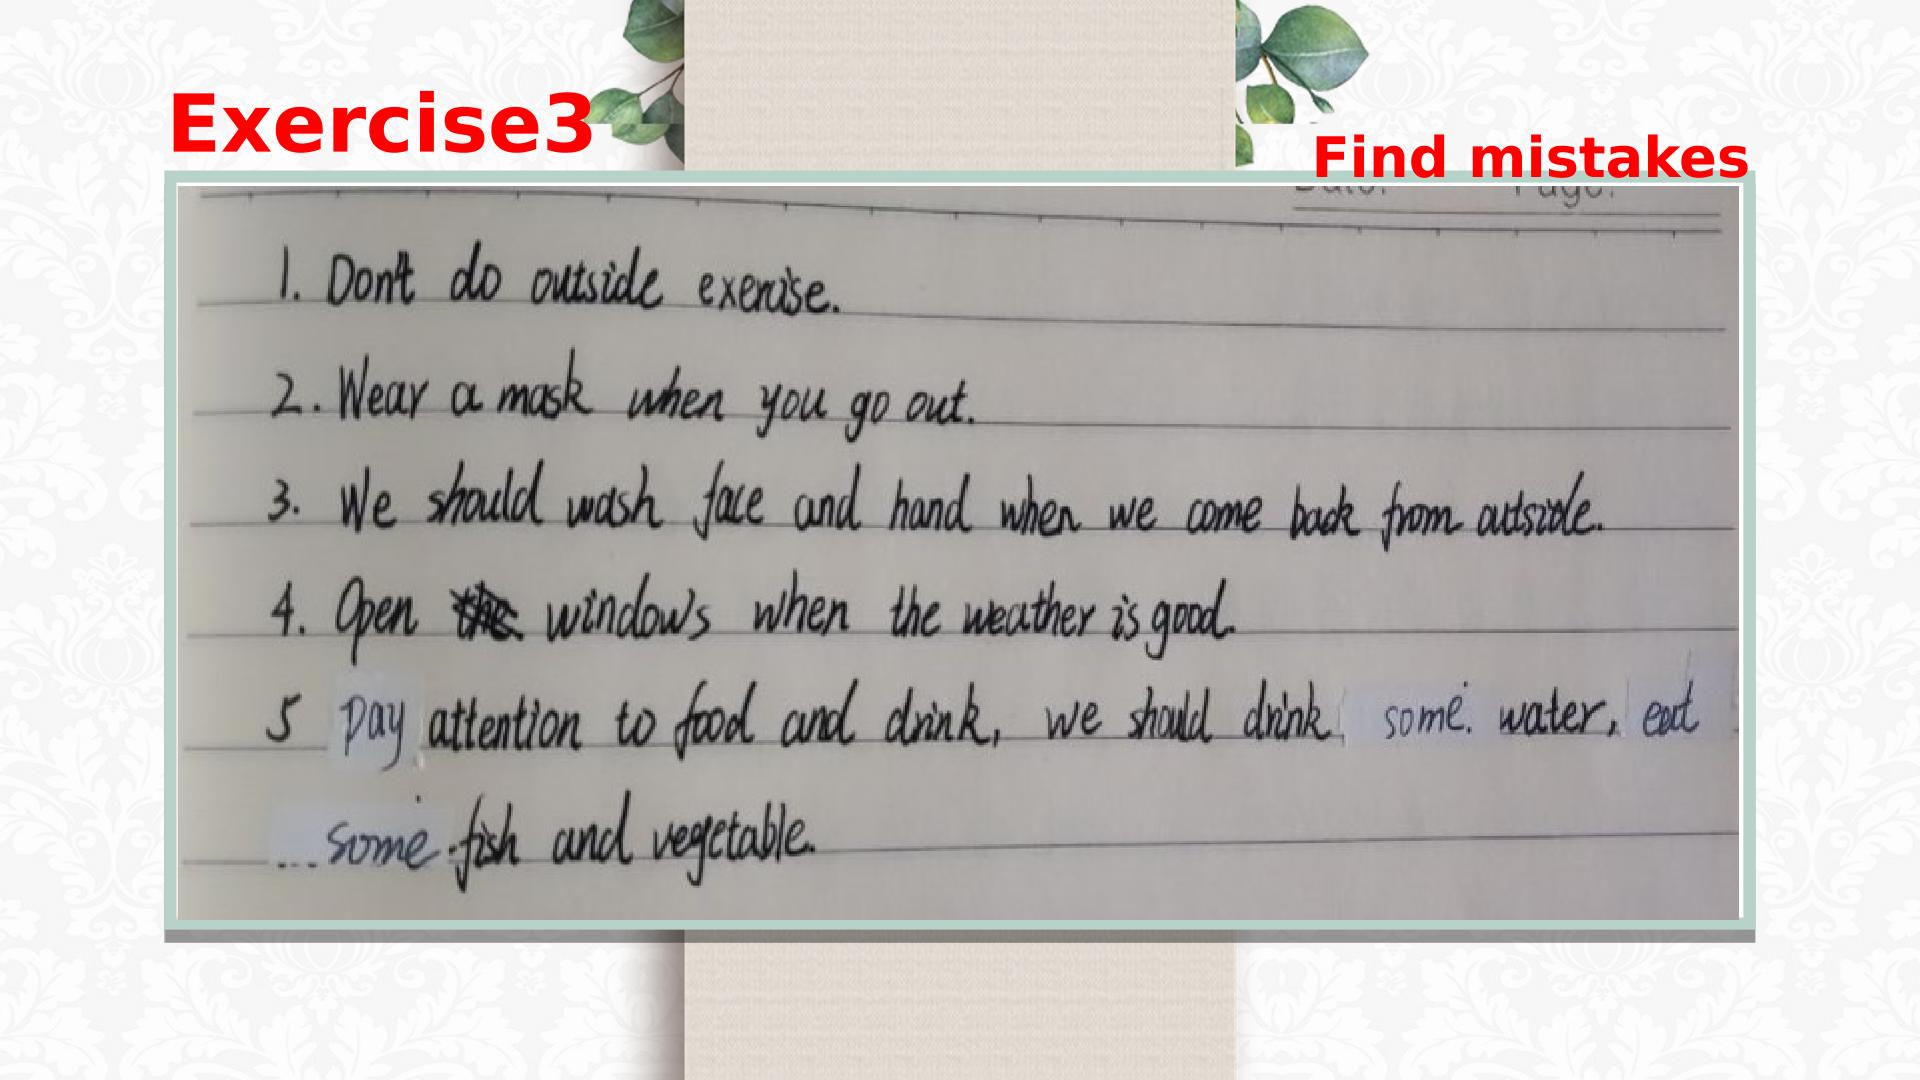 Exercise3
Find mistakes
Date: Page:
1. Don't do outside exercise.
2. Wear a mask when you go out.
3. We should wash face and hand when we come back from outside.
4. Open the windows when the weather is good.
5 Pay attention to food and drink, we should drink some. water, eat
...some fish and vegetable.